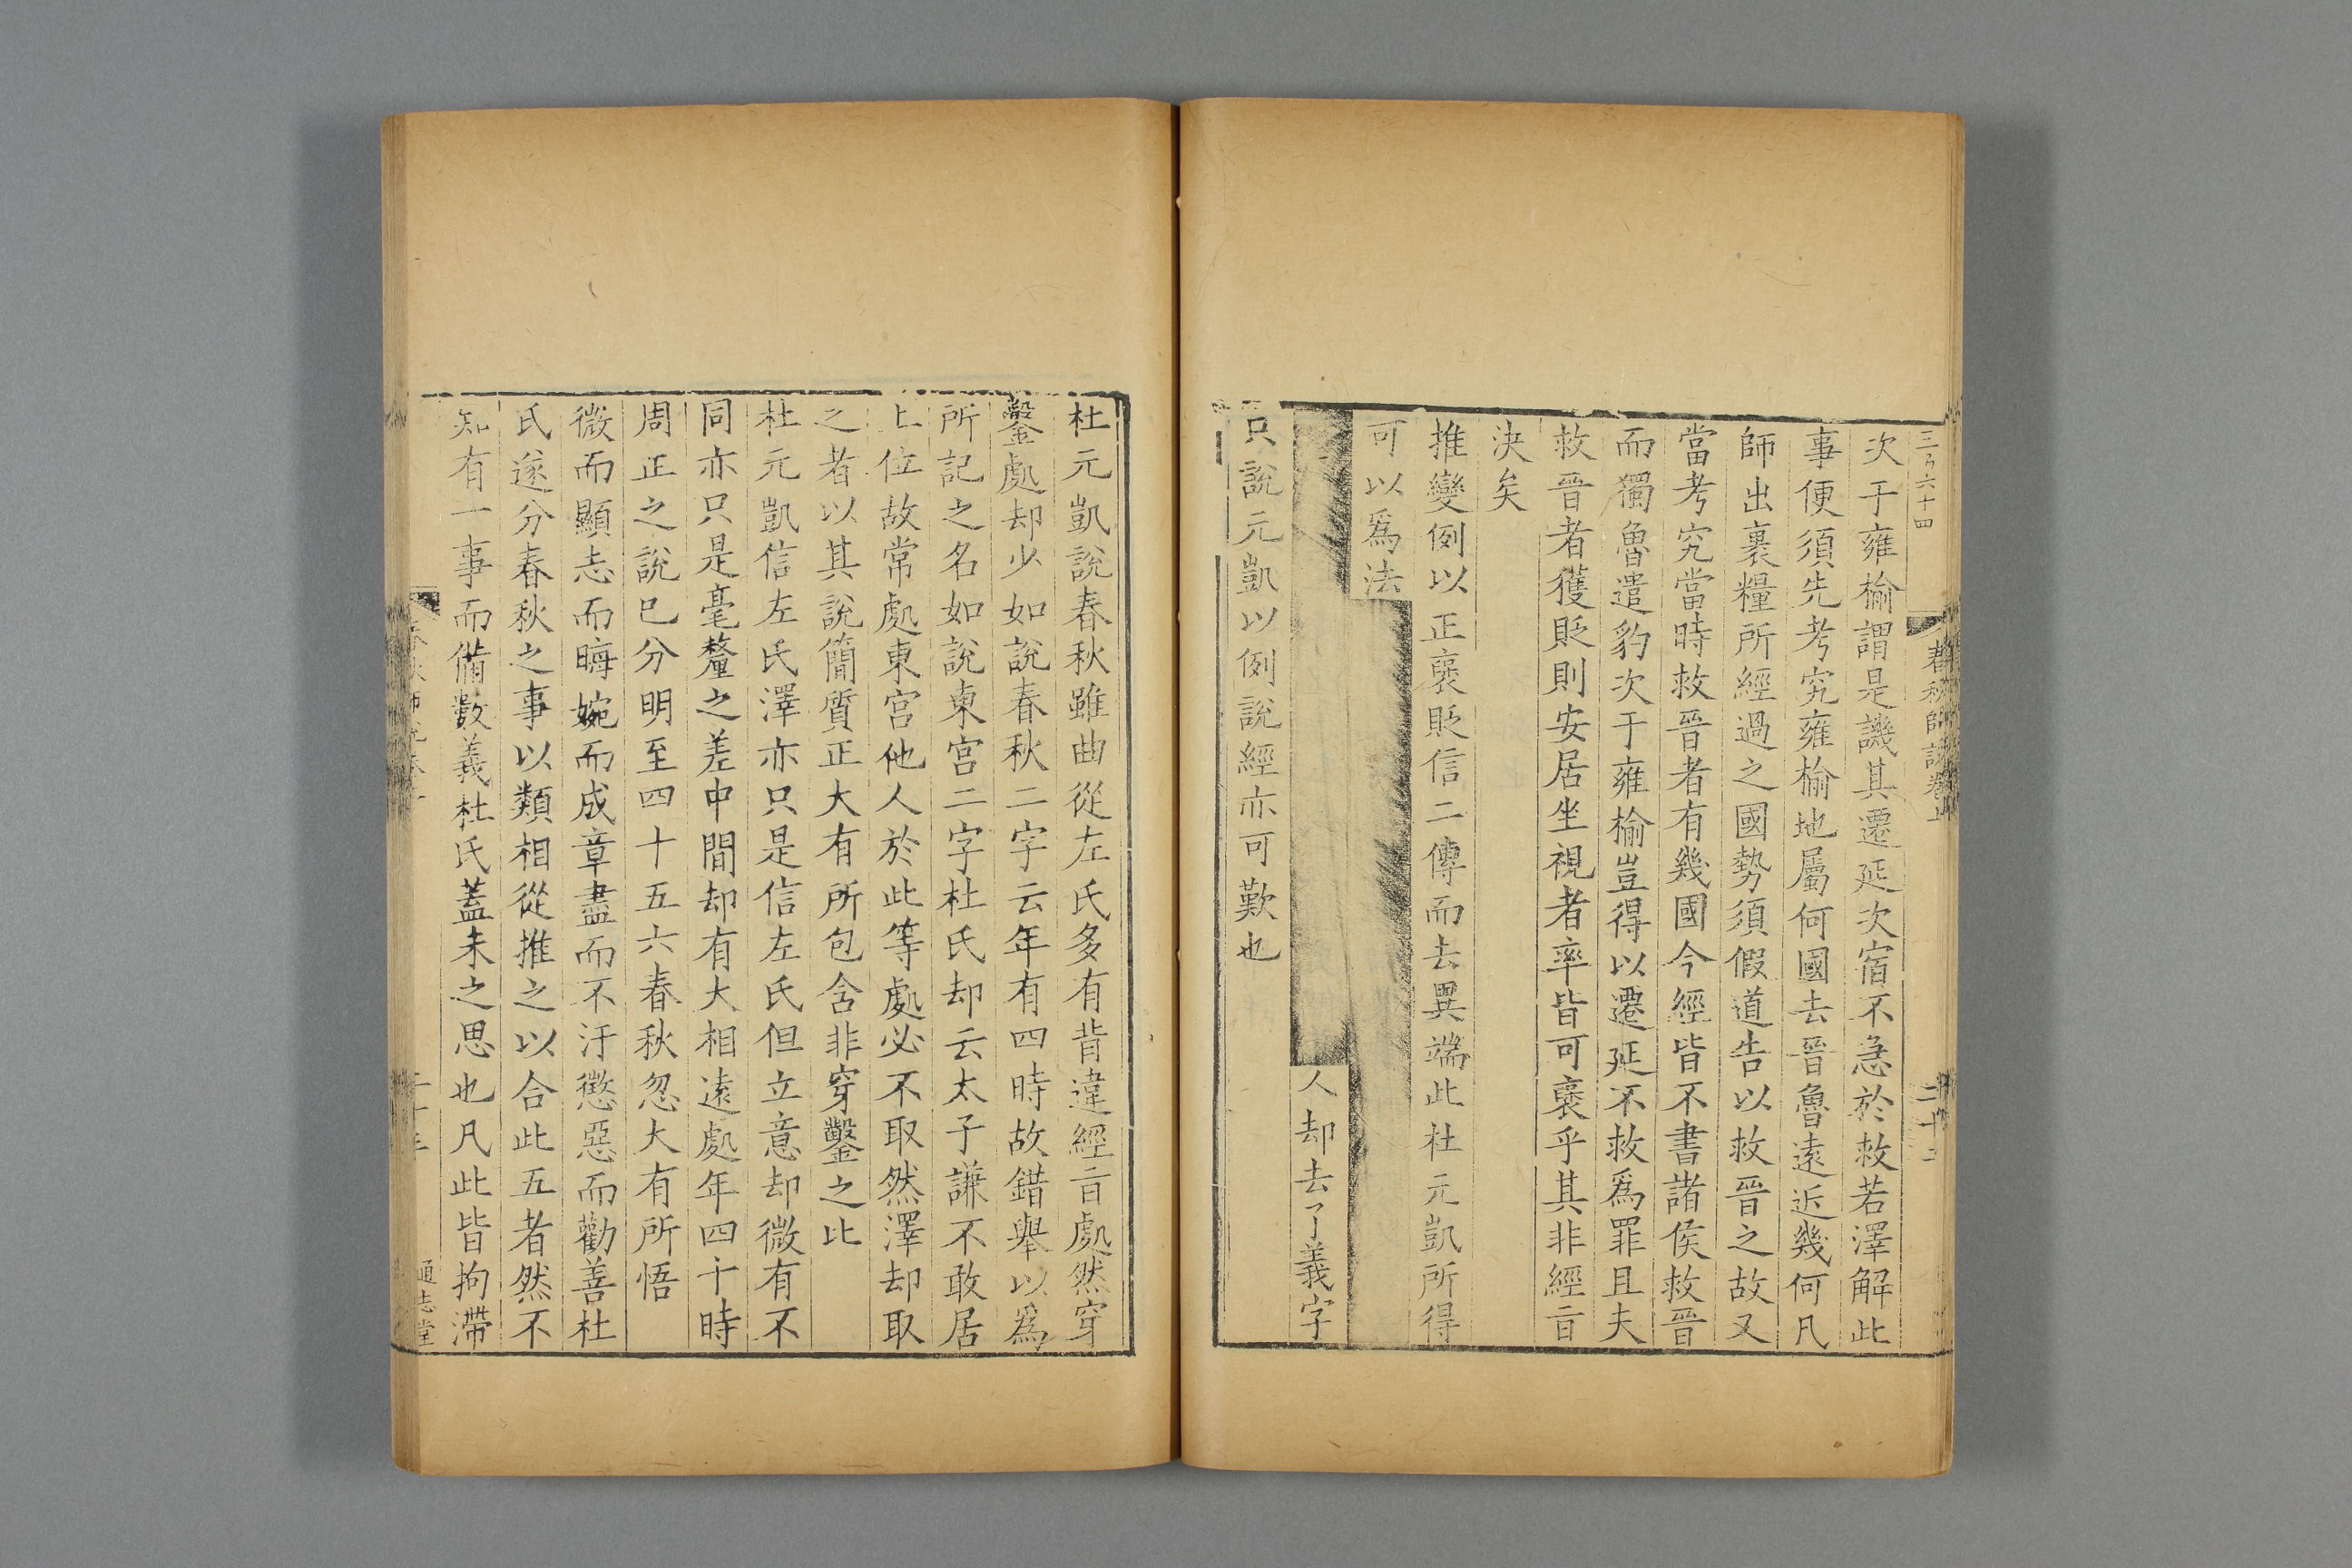 三百六十四
春秋師說卷上
二十二
次于雍榆謂是譏其遷延次宿不急於救若澤解此
事便須先考究雍榆地屬何國去晉魯遠近幾何凡
師出裹糧所經過之國勢須假道告以救晉之故又
當考究當時救晉者有幾國今經皆不書諸侯救晉
而獨魯遣豹次于雍榆豈得以遷延不救爲罪且夫
救晉者獲貶則安居坐視者率皆可襃乎其非經㫖
決矣
推變例以正襃貶信二傳而去異端此杜元凱所得
可以爲法
人却去了義字
只說元凱以例說經亦可歎也
杜元凱說春秋雖曲從左氏多有背違經㫖處然穿
鑿處却少如說春秋二字云年有四時故錯舉以爲
所記之名如說東宮二字杜氏却云太子謙不敢居
上位故常處東宮他人於此等處必不取然澤却取
之者以其說簡質正大有所包含非穿鑿之比
杜元凱信左氏澤亦只是信左氏但立意却微有不
同亦只是毫釐之差中間却有大相遠處年四十時
周正之說已分明至四十五六春秋忽大有所悟
微而顯志而晦婉而成章盡而不汙懲惡而勸善杜
氏遂分春秋之事以類相從推之以合此五者然不
知有一事而備數義杜氏蓋未之思也凡此皆拘滯
通志堂